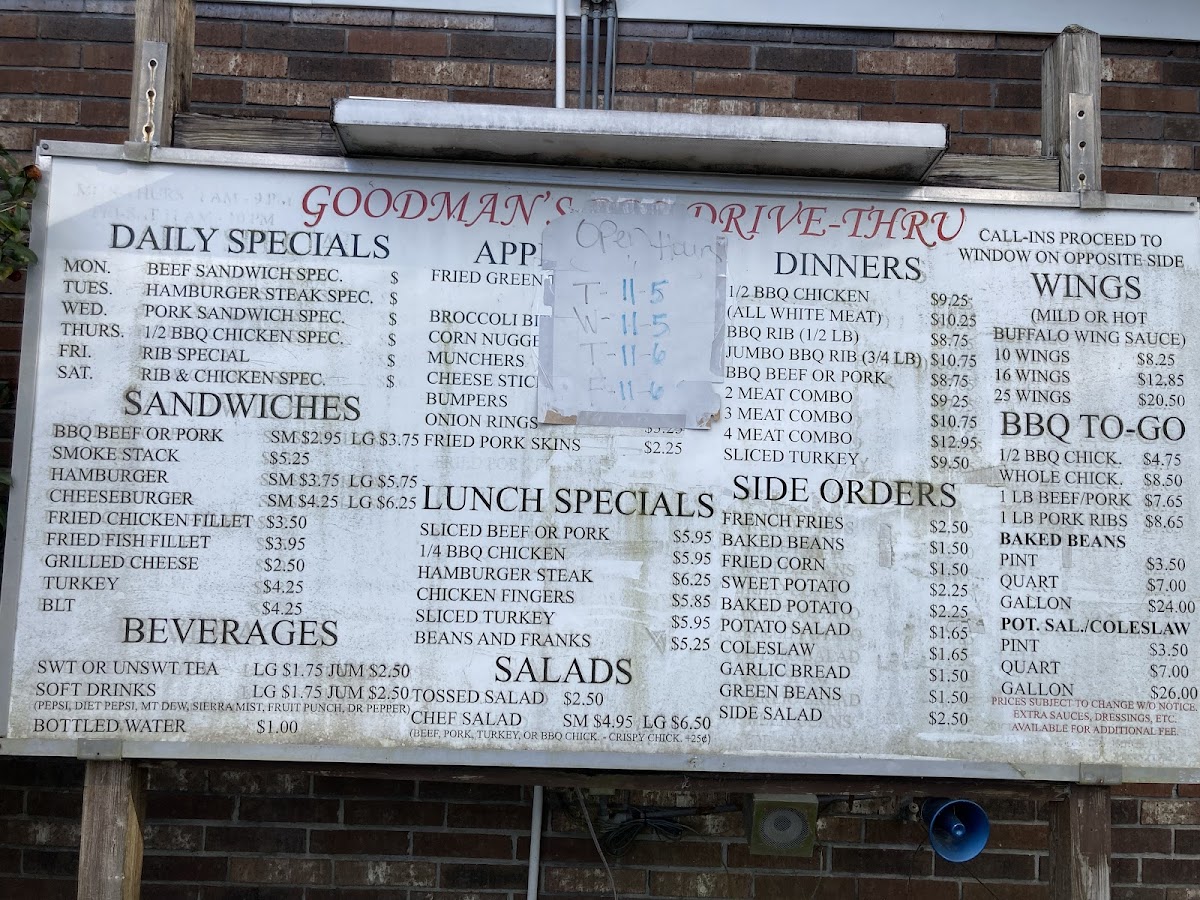 GOODMAN'S DRIVE-THRU
Open Hours
T-11-5
W-11-5
T-11-6
F-11-6
DAILY SPECIALS
MON. BEEF SANDWICH SPEC. $
TUES. HAMBURGER STEAK SPEC. $
WED. PORK SANDWICH SPEC. $
THURS. 1/2 BBQ CHICKEN SPEC. $
FRI. RIB SPECIAL $
SAT. RIB & CHICKEN SPEC. $
SANDWICHES
BBQ BEEF OR PORK SM $2.95 LG $3.75
SMOKE STACK $5.25
HAMBURGER SM $3.75 LG $5.75
CHEESEBURGER SM $4.25 LG $6.25
FRIED CHICKEN FILLET $3.50
FRIED FISH FILLET $3.95
GRILLED CHEESE $2.50
TURKEY $4.25
BLT $4.25
BEVERAGES
SWT OR UNSWT TEA LG $1.75 JUM $2.50
SOFT DRINKS LG $1.75 JUM $2.50
(PEPSI, DIET PEPSI, MT DEW, SIERRA MIST, FRUIT PUNCH, DR PEPPER)
BOTTLED WATER $1.00
APP
FRIED GREEN
BROCCOLI BI
CORN NUGGE
MUNCHERS
CHEESE STIC
BUMPERS
ONION RINGS
FRIED PORK SKINS $2.25
LUNCH SPECIALS
SLICED BEEF OR PORK $5.95
1/4 BBQ CHICKEN $5.95
HAMBURGER STEAK $6.25
CHICKEN FINGERS $5.85
SLICED TURKEY $5.95
BEANS AND FRANKS $5.25
SALADS
TOSSED SALAD $2.50
CHEF SALAD SM $4.95 LG $6.50
(BEEF, PORK, TURKEY, OR BBQ CHICK. - CRISPY CHICK. +25¢)
DINNERS
1/2 BBQ CHICKEN $9.25
(ALL WHITE MEAT) $10.25
BBQ RIB (1/2 LB) $8.75
JUMBO BBQ RIB (3/4 LB) $10.75
BBQ BEEF OR PORK $8.75
2 MEAT COMBO $9.25
3 MEAT COMBO $10.75
4 MEAT COMBO $12.95
SLICED TURKEY $9.50
SIDE ORDERS
FRENCH FRIES $2.50
BAKED BEANS $1.50
FRIED CORN $1.50
SWEET POTATO $2.25
BAKED POTATO $2.25
POTATO SALAD $1.65
COLESLAW $1.65
GARLIC BREAD $1.50
GREEN BEANS $1.50
SIDE SALAD $2.50
CALL-INS PROCEED TO
WINDOW ON OPPOSITE SIDE
WINGS
(MILD OR HOT
BUFFALO WING SAUCE)
10 WINGS $8.25
16 WINGS $12.85
25 WINGS $20.50
BBQ TO-GO
1/2 BBQ CHICK. $4.75
WHOLE CHICK. $8.50
1 LB BEEF/PORK $7.65
1 LB PORK RIBS $8.65
BAKED BEANS
PINT $3.50
QUART $7.00
GALLON $24.00
POT. SAL./COLESLAW
PINT $3.50
QUART $7.00
GALLON $26.00
PRICES SUBJECT TO CHANGE W/O NOTICE.
EXTRA SAUCES, DRESSINGS, ETC.
AVAILABLE FOR ADDITIONAL FEE.